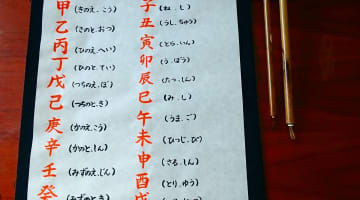 甲(きのえ、こう)
乙(きのと、おつ)
丙(ひのえ、へい)
丁(ひのと、てい)
戊(つちのえ、ぼ)
己(つちのと、き)
庚(かのえ、こう)
辛(かのと、しん)
壬(みずのえ、じん)
癸(みずのと、き)
子(ね、し)
丑(うし、ちゅう)
寅(とら、いん)
卯(う、ぼう)
辰(たつ、しん)
巳(み、し)
午(うま、ご)
未(ひつじ、び)
申(さる、しん)
酉(とり、ゆう)